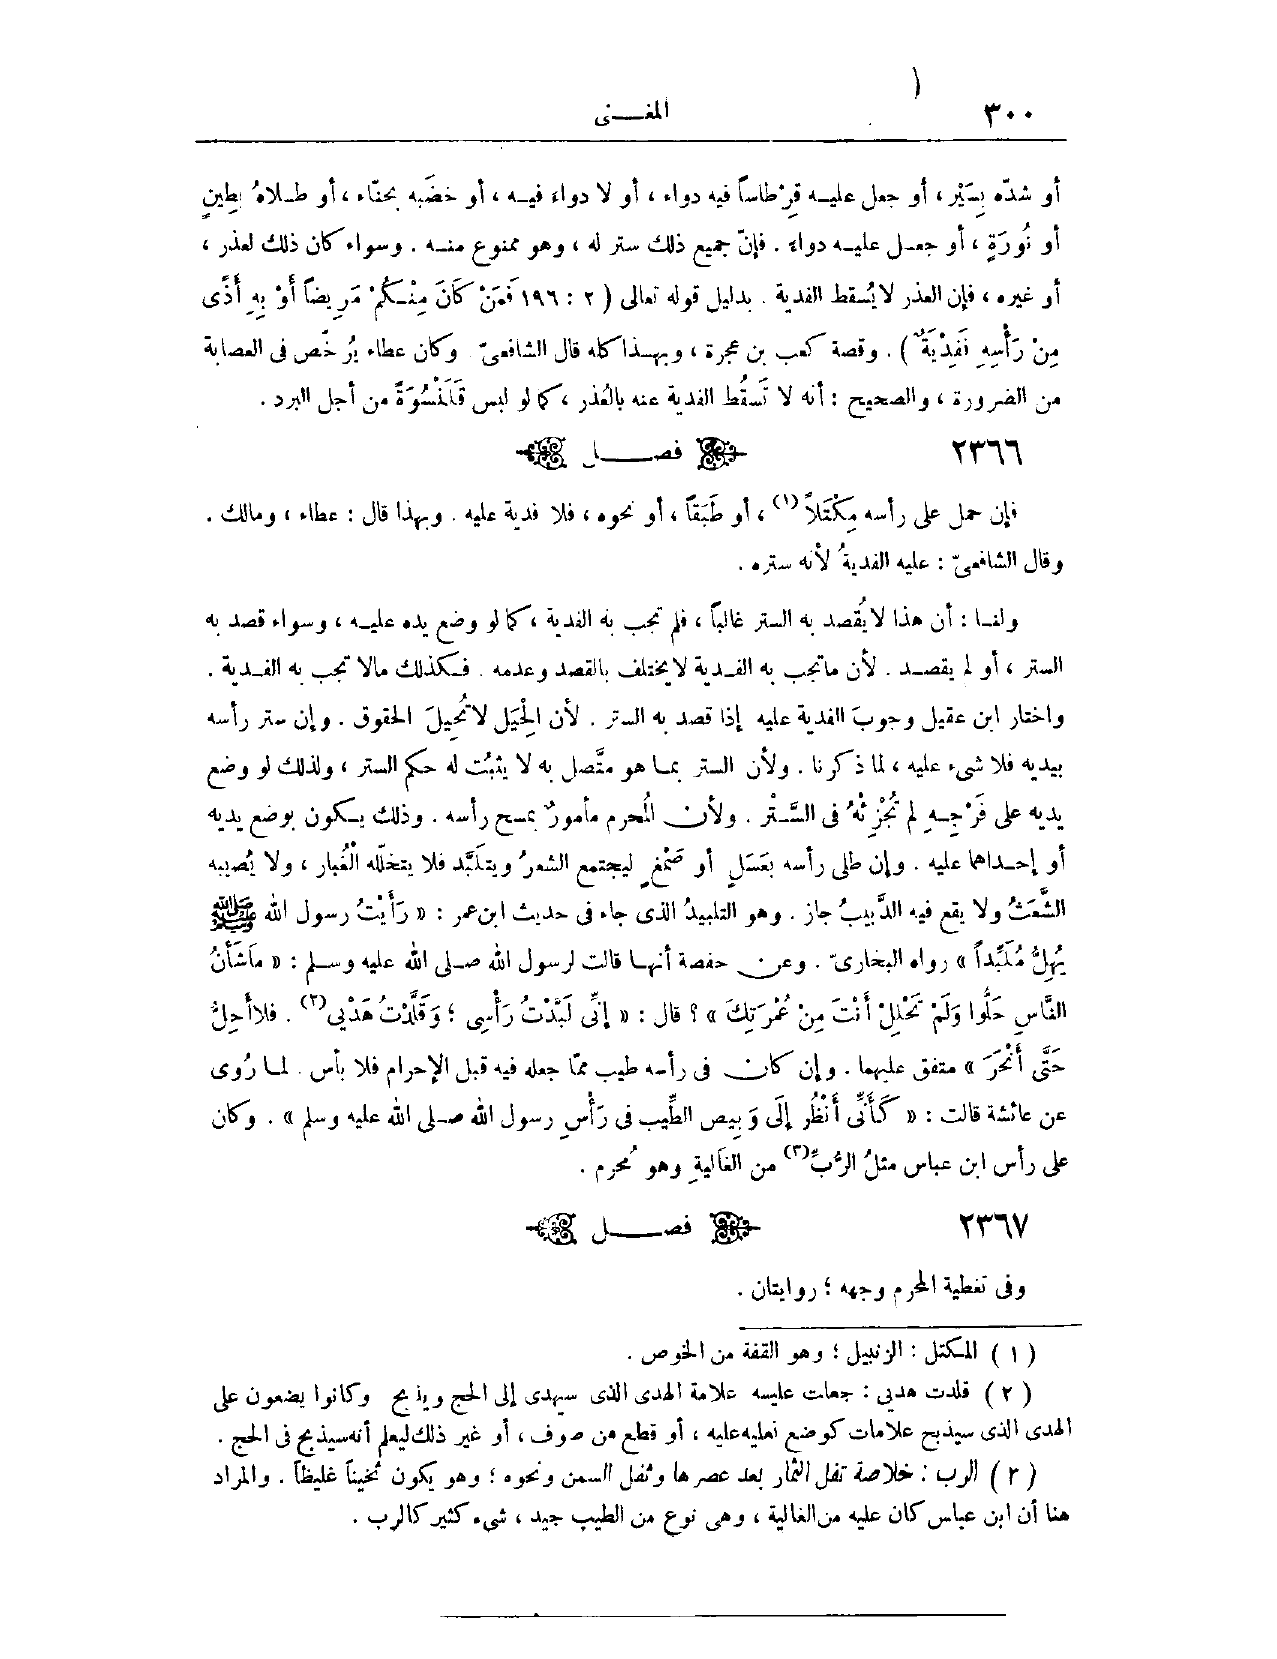 ٣٠٠ المغــنى
أو شدّه بِسَيْر ، أو جعل عليــه قِرْطاساً فيه دواء ، أو لا دواءَ فيــه ، أو خضَبه بحنّاء ، أو طــلاهُ بطِينٍ
أو نُورَةٍ ، أو جعــل عليــه دواءً . فإنّ جميع ذلك ستر له ، وهو ممنوع منــه . وسواء كان ذلك لعذر ،
أو غيره ، فإن العذر لا يُسقط الفدية . بدليل قوله تعالى ( ٢ : ١٩٦ فَمَنْ كَانَ مِنْـكُمْ مَرِيضاً أَوْ بِهِ أَذًى
مِنْ رَأْسِهِ فَفِدْيَةٌ ) . وقصة كعب بن عجرة ، وبهــذا كله قال الشافعىّ وكان عطاء يُرخّص فى العصابة
من الضرورة ، والصحيح : أنه لا تَسقُط الفدية عنه بالعُذر ، كما لو لبس قَلَنْسُوَةً من أجل البرد .
٢٣٦٦ فصــــل
فإن حمل على رأسه مِكْتَلاً (١) ، أو طَبَقاً ، أو نحوه ، فلا فدية عليه . وبهذا قال : عطاء ، ومالك .
وقال الشافعىّ : عليه الفديةُ لأنه ستره .
ولنــا : أن هذا لا يُقصد به الستر غالباً ، فلم تجب به الفدية ، كما لو وضع يده عليــه ، وسواء قصد به
الستر ، أو لم يقصــد . لأن ماتجب به الفــدية لا يختلف بالقصد وعدمه . فــكذلك مالا تجب به الفــدية .
واختار ابن عقيل وجوبَ الفدية عليه إذا قصد به الستر . لأن الْحِيَل لا تُحِيلَ الحقوق . وإن ستر رأسه
بيديه فلا شىء عليه ، لما ذكرنا . ولأن الستر بمــا هو متَّصل به لا يثبُت له حكم الستر ، ولذلك لو وضع
يديه على فَرْجِــهِ لم تُجْزِئْهُ فى السَّــتْر . ولأن الُمحرم مأمورٌ بمسح رأسه . وذلك يــكون بوضع يديه
أو إحــداهما عليه . وإن طلى رأسه بعَسَلٍ أو صَمْغٍ ليجتمع الشعرُ ويتلَبَّد فلا يتخلّله الْغُبار ، ولا يُصيبه
الشَّعَثُ ولا يقع فيه الدَّبيبُ جاز . وهو التلبيدُ الذى جاء فى حديث ابن عمر : « رَأَيْتُ رسول الله ﷺ
يُهِلُّ مُلَبِّداً » رواه البخارىّ . وعن حفصة أنهــا قالت لرسول الله صــلى الله عليه وســلم : « مَاشَأنُ
النَّاسِ حَلُّوا وَلَمْ تَحْلِلْ أَنْتَ مِنْ عُمْرَتِكَ » ؟ قال : « إنِّى لَبَّدْتُ رَأْسِى ؛ وَقَلَّدْتُ هَدْيِى (٢) . فلا أُحِلُّ
حَتَّى أَنْحَرَ » متفق عليهما . وإن كان فى رأسه طيب ممّا جعله فيه قبل الإحرام فلا بأس . لمــا رُوى
عن عائشة قالت : « كَأَنِّى أَنْظُر إلَى وَبِيص الطِّيب فى رَأْسِ رسول الله صــلى الله عليه وسلم » . وكان
على رأس ابن عباس مثلُ الرُّبِّ (٣) من الغاَليةِ وهو مُحرم .
٢٣٦٧ فصــــل
وفى تغطية المحرم وجهه ؛ روايتان .
( ١ ) المكتل : الزنبيل ؛ وهو القفة من الخوص .
( ٢ ) قلدت هديى : جعلت عليــه علامة الهدى الذى سيهدى إلى الحج ويذبح وكانوا يضعون على
الهدى الذى سيذبح علامات كوضع نعليه عليه ، أو قطع من صوف ، أو غير ذلك ليعلم أنه سيذبح فى الحج .
( ٣ ) الرب : خلاصة تفل الثمار بعد عصرها وثفل السمن ونحوه ؛ وهو يكون ثخيناً غليظاً . والمراد
هنا أن ابن عباس كان عليه من الغالية ، وهى نوع من الطيب جيد ، شىء كثير كالرب .